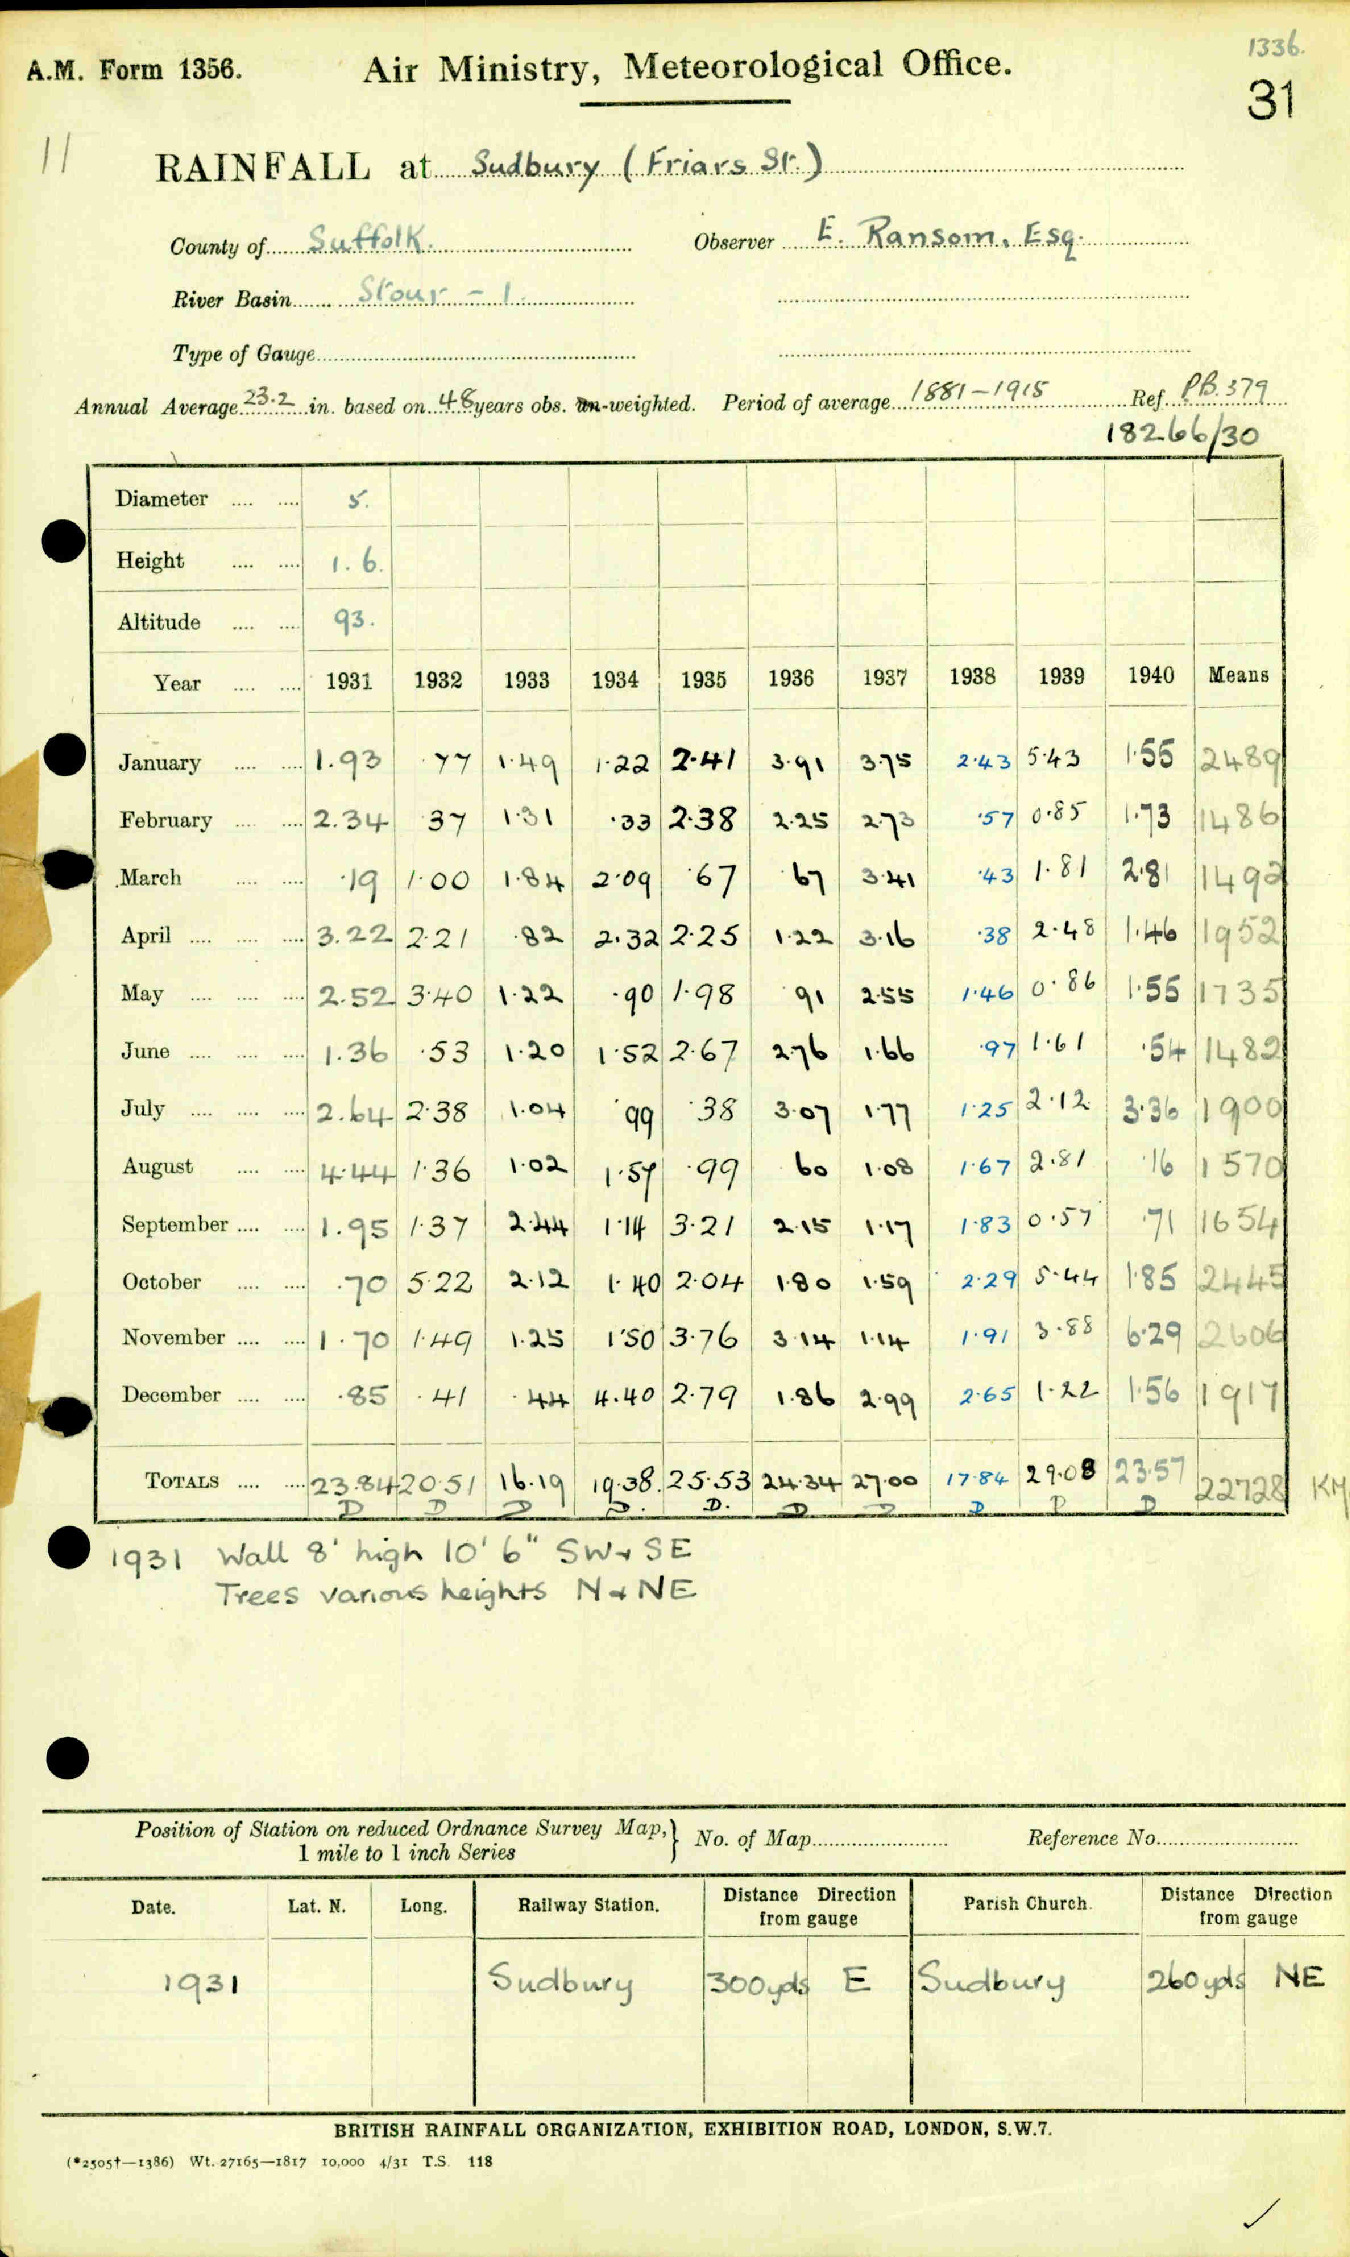 1336.
A.M. Form 1356. Air Ministry, Meteorological Office.
31
11
RAINFALL at Sudbury (Friars St.)
County of Suffolk. Observer E. Ransom, Esq.
River Basin Stour - 1.
Type of Gauge
Annual Average 23.2 in. based on 48 years obs. un-weighted. Period of average 1881-1915 Ref. P.B. 379
18266/30
Diameter .... .... 5.
Height .... .... 1. 6.
Altitude .... .... 93.
Year .... .... 1931 1932 1933 1934 1935 1936 1937 1938 1939 1940 Means
January .... .... 1.93 .77 1.49 1.22 2.41 3.91 3.75 2.43 5.43 1.55 2489
February .... .... 2.34 37 1.31 .33 2.38 2.25 2.73 .57 0.85 1.73 1486
March .... .... .19 1.00 1.84 2.09 .67 67 3.41 .43 1.81 2.81 1492
April .... .... .... 3.22 2.21 .82 2.32 2.25 1.22 3.16 .38 2.48 1.46 1952
May .... .... .... 2.52 3.40 1.22 .90 1.98 91 2.55 1.46 0.86 1.55 1735
June .... .... .... 1.36 .53 1.20 1.52 2.67 2.76 1.66 .97 1.61 .54 1482
July .... .... .... 2.64 2.38 1.04 .99 .38 3.07 1.77 1.25 2.12 3.36 1900
August .... .... 4.44 1.36 1.02 1.57 .99 60 1.08 1.67 2.81 .16 1570
September .... .... 1.95 1.37 2.44 1.14 3.21 2.15 1.17 1.83 0.57 .71 1654
October .... .... .70 5.22 2.12 1.40 2.04 1.80 1.59 2.29 5.44 1.85 2445
November .... .... 1.70 1.49 1.25 1.50 3.76 3.14 1.14 1.91 3.88 6.29 2606
December .... .... .85 .41 .44 4.40 2.79 1.86 2.99 2.65 1.22 1.56 1917
TOTALS .... .... 23.84 20.51 16.19 19.38 25.53 24.34 27.00 17.84 29.08 23.57 22728 KM
D D D D. D. D D D D D
1931 Wall 8' high 10' 6" SW + SE
Trees various heights N + NE
Position of Station on reduced Ordnance Survey Map,} No. of Map Reference No.
1 mile to 1 inch Series
Date. Lat. N. Long. Railway Station. Distance Direction Parish Church. Distance Direction
from gauge from gauge
1931 Sudbury 300yds E Sudbury 260yds NE
BRITISH RAINFALL ORGANIZATION, EXHIBITION ROAD, LONDON, S.W.7.
(*2505†—1386) Wt. 27165—1817 10,000 4/31 T.S. 118